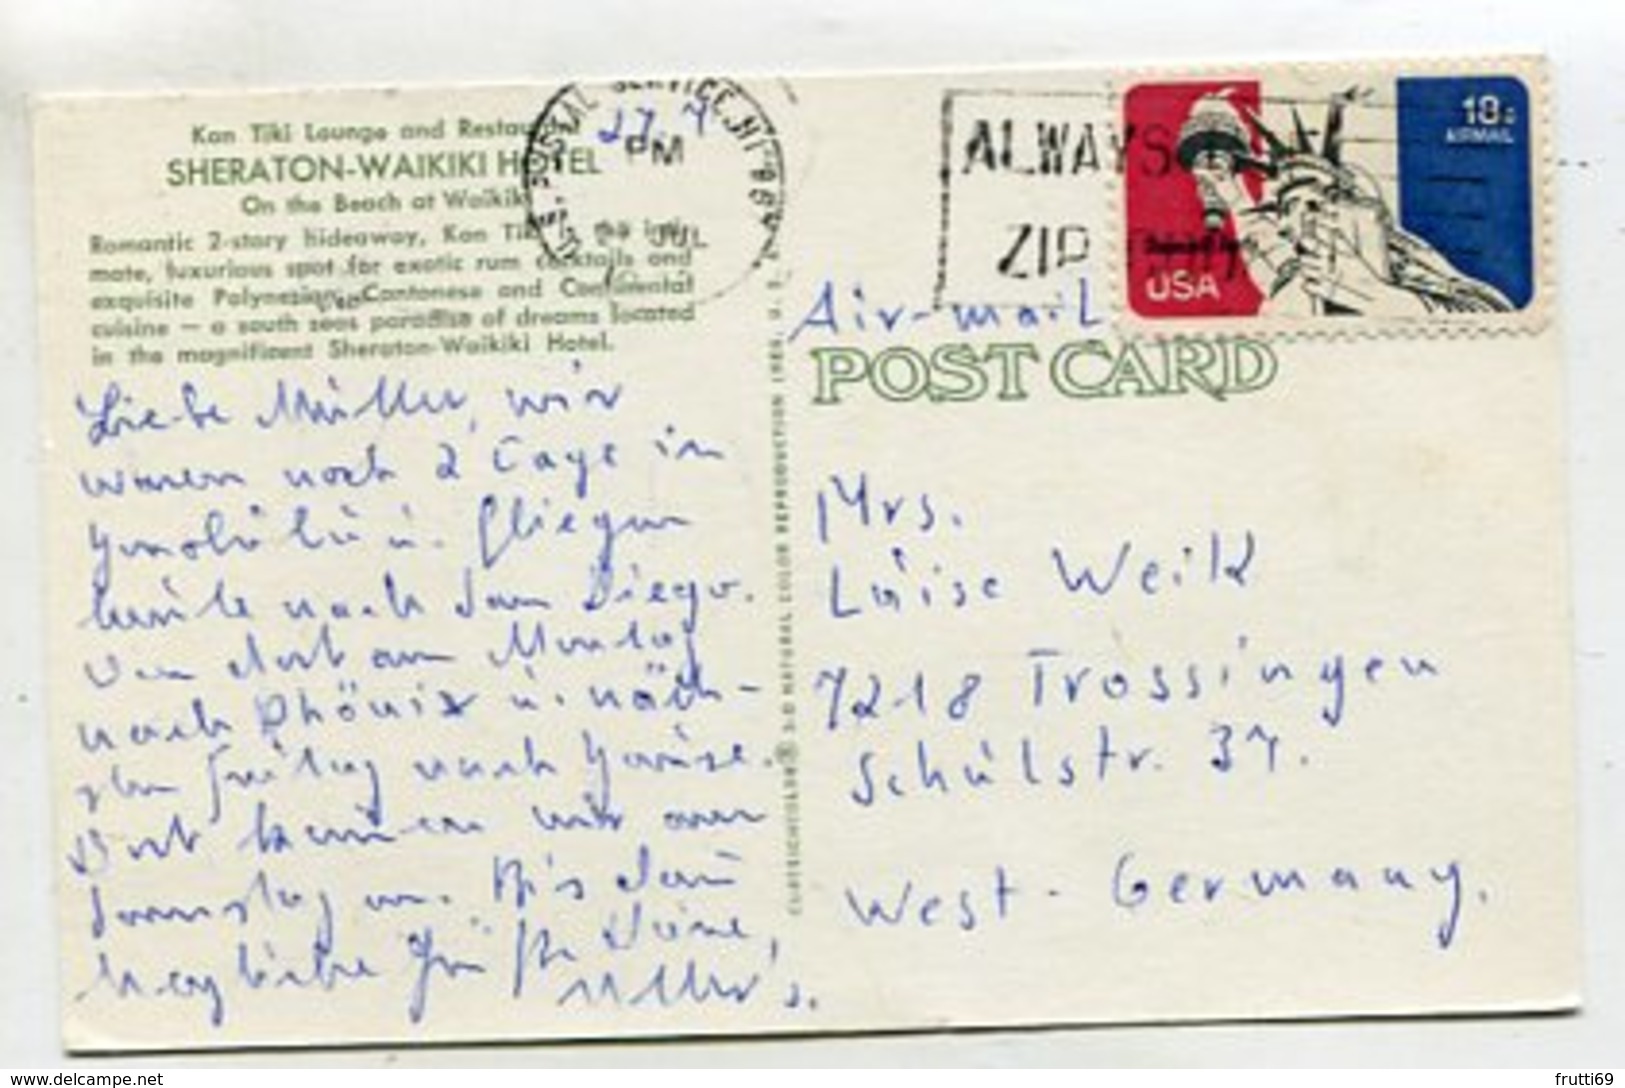 Kon Tiki Lounge and Restaurant
SHERATON-WAIKIKI HOTEL
On the Beach at Waikiki
Romantic 2-story hideaway, Kon Tiki is the inti-
mate, luxurious spot for exotic rum cocktails and
exquisite Polynesian, Cantonese and Continental
cuisine — a south seas paradise of dreams located
in the magnificent Sheraton-Waikiki Hotel.
Liebe Mutter, wir
waren noch 2 Tage in
Honolulu u. fliegen
heute nach San Diego.
Von dort am Montag
nach Phönix u. näch-
sten Freitag nach Hause.
Dort kommen wir am
Samstag an. Bis dann
liebe Grüße
POSTAL SERVICE, HI 968
27. 7
PM
JUL
ALWAYS
ZIP
18c
AIRMAIL
USA
Air-mail
POST CARD
Mrs.
Luise Weild
7218 Trossingen
Schulstr. 37.
West-Germany.
NATURAL COLOR REPRODUCTION
frutti69